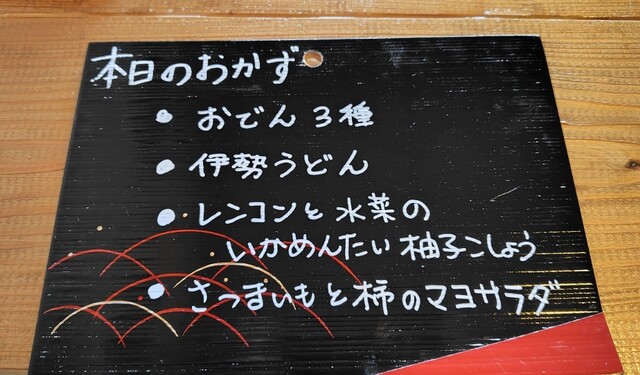 本日のおかず
• おでん 3種
• 伊勢うどん
• レンコンと水菜の
いかめんたい 柚子こしょう
• さつまいもと柿のマヨサラダ